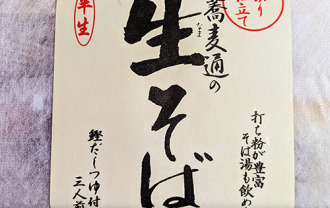 半生
蕎麦通の
生そば
なま
打ち粉が豊富
そば湯も飲め
鰹だしつゆ付
三人前